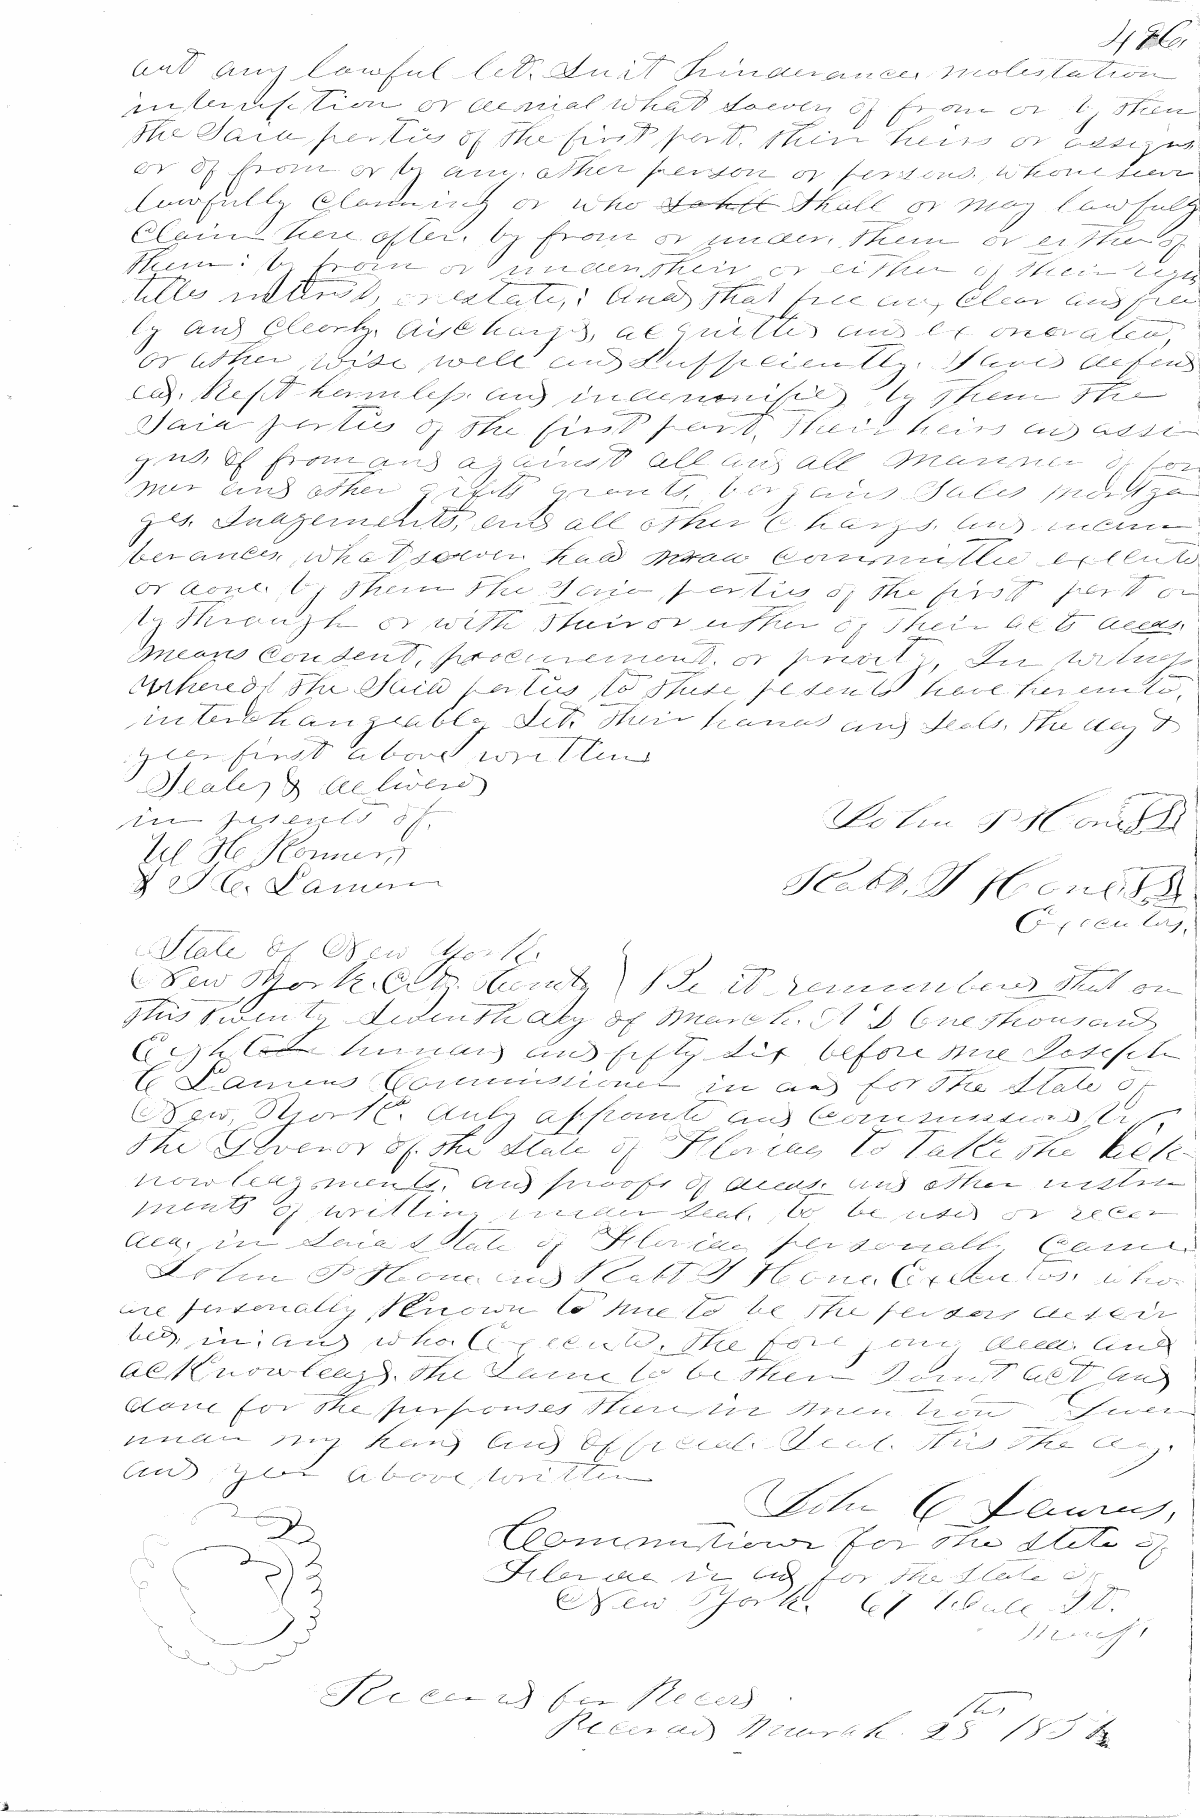 486
out any lawful let. Suit hinderances molestation
interuption or denial what soever of from or by them
the Said parties of the first part. Their heirs or assigns
or of from or by any. other person or persons. whomesoever
lawfully Claiming or who Shall or may lawfully
Claim here after. by from or under. Them or either of
them: by from or under their or either of their right
titles interest, or estate,: And That free and Clear and free
ly and Clearly. discharged, acquitted and exonerated,
or other wise well and Sufficiently. Saved defend
ed. Kept harmless. and indemnified by Them The
Said parties of the first part, Their heirs and assi
gns. Of from and against all and all manner of for
mer and other gifts grants, bargains Sales mortga
ges. Judgements, and all other Charges. and incum
berances. what soever. had made committed executed
or done by them The Said parties of the first part or
by Through or with Their or either of Their acts deeds.
means consent, procurement. or privity, In witness
whereof The Said parties to These presents have hereunto,
interchangeable Set. Their hands and seals. The day &
year first above written
Sealed & delivered
in presents of.
W H
& J C. Lamern
John P Hone
Robt. S Hone
Executors.
State of New York.
New York. City. County } Be it remembered That on
This Twenty Seventh day of March. A D One Thousand
Eight hundred and fifty Six before me Joseph
C Commissioner in and for The State of
New, York. duly appointed and Commissioned by
The Govenor of. the State of Florida To Take The Ack
nowledgments, and proofs of deeds. and other instru
ments of writting under Seal. to be used or recor
ded. in Said State of Florida personally Came
John P Hone and Robt S Hone. Executors. who
are personally Known to me to be The persons descri
bed in: and who Executed. The fore going deed. and
acKnowledged. The Same to be Their Joint act and
done for The purposes There in mention Given
under my hand and Official. Seal. This The day.
and year above written
John C
Commistioner for The State of
Florida in and for The State of
New York. 61 Wall St.
Received for Record
Recorded March. 28th 185